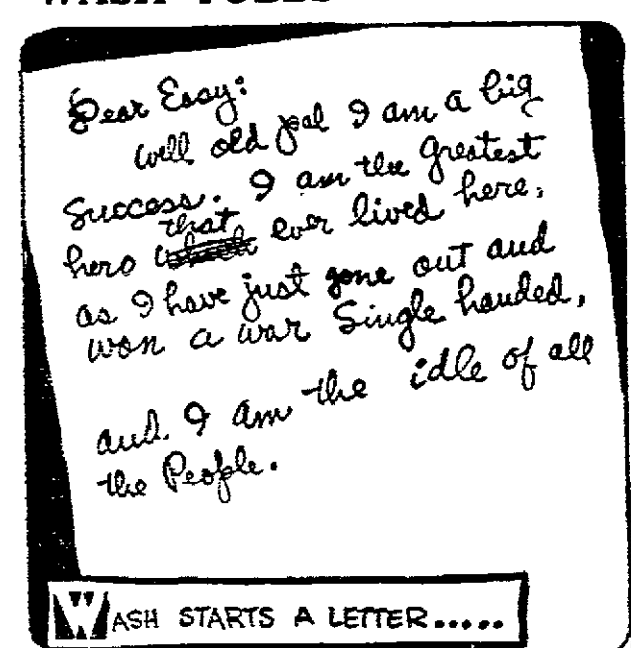 WASH TUBBS
Dear Easy:
Well old pal I am a big
Success. I am the greatest
that
hero ever lived here,
as I have just gone out and
won a war Single handed,
and I am the idle of all
the People.
WASH STARTS A LETTER.....